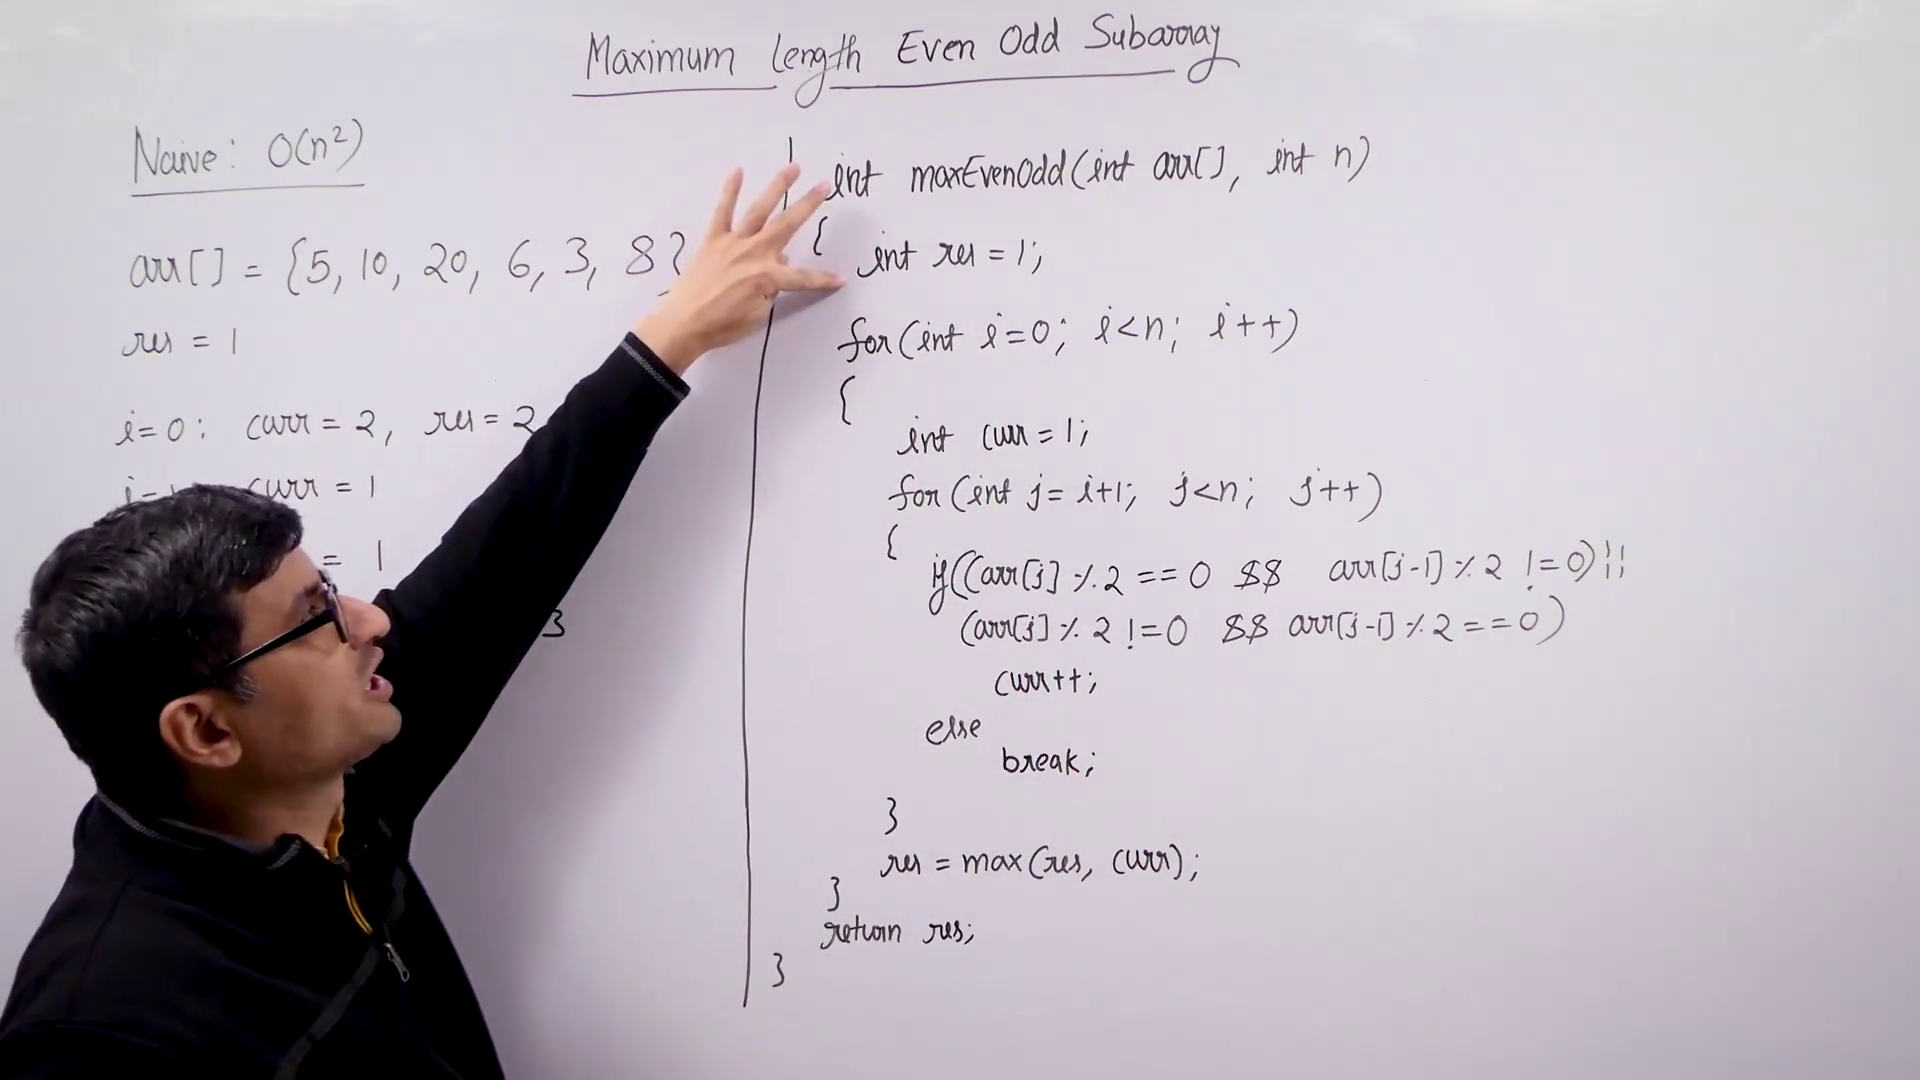 Maximum Length Even Odd Subarray
Naive: O(n²)
arr[] = {5, 10, 20, 6, 3, 8}
res = 1
i=0: curr = 2, res = 2
curr = 1
= 1
3
int maxEvenOdd(int arr[], int n)
{
int res = 1;
for(int i=0; i<n; i++)
{
int curr = 1;
for(int j= i+1; j<n; j++)
{
if((arr[j] % 2 == 0 && arr[j-1] % 2 != 0) ||
(arr[j] % 2 != 0 && arr[j-1] % 2 == 0)
curr++;
else
break;
}
res = max(res, curr);
}
return res;
}